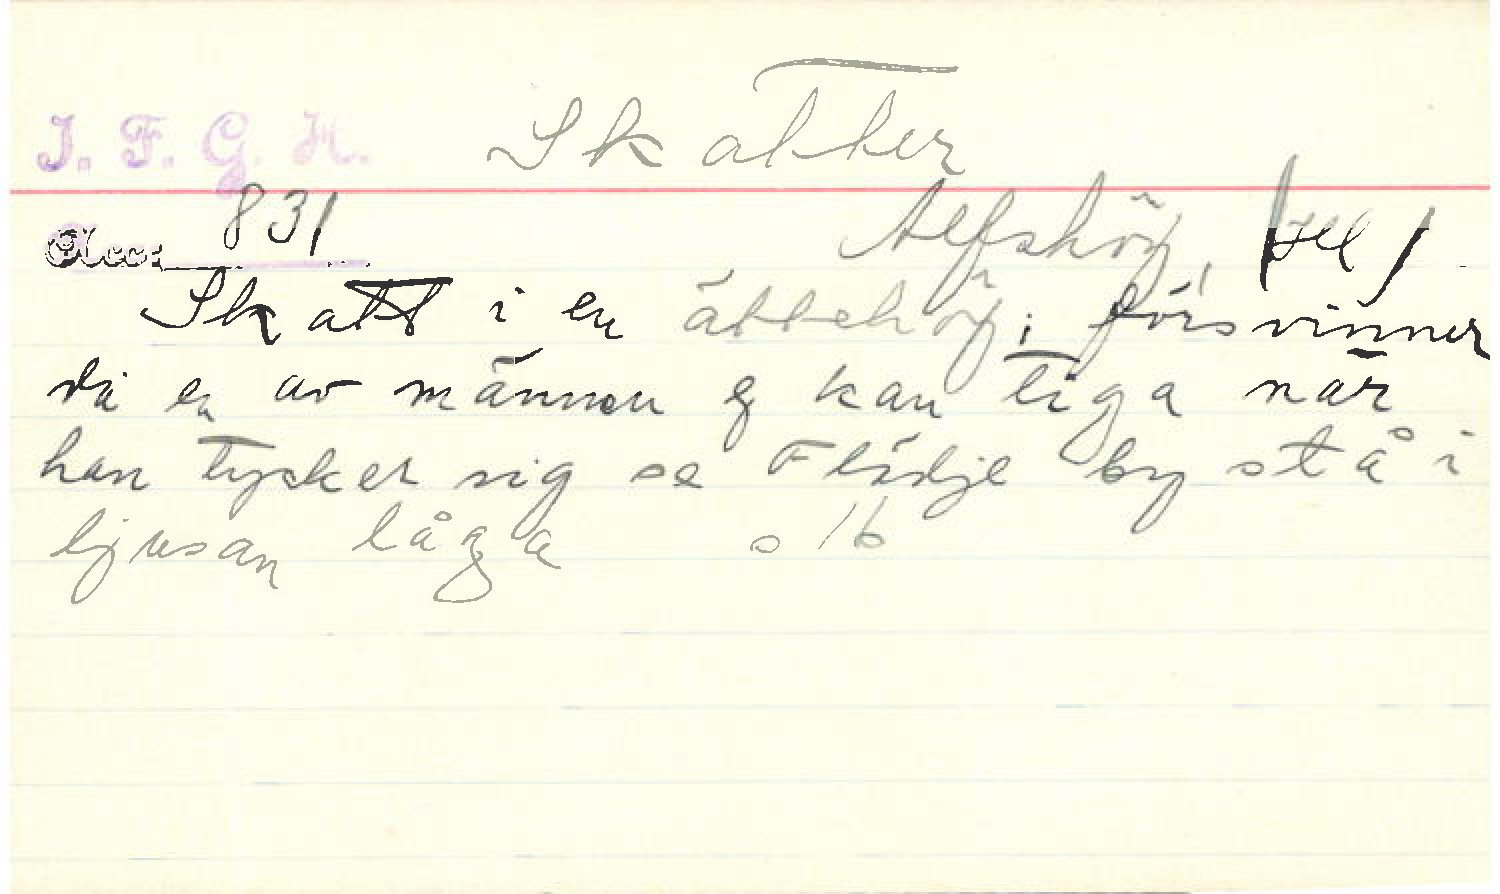 I. F. G. H. Skatter
Acc: 831 Alfshög, /Hl/
Skatt i en ättehög; försvinner
då en av männen ej kan tiga när
han tycker sig se Flädje by stå i
ljusan låga s 16